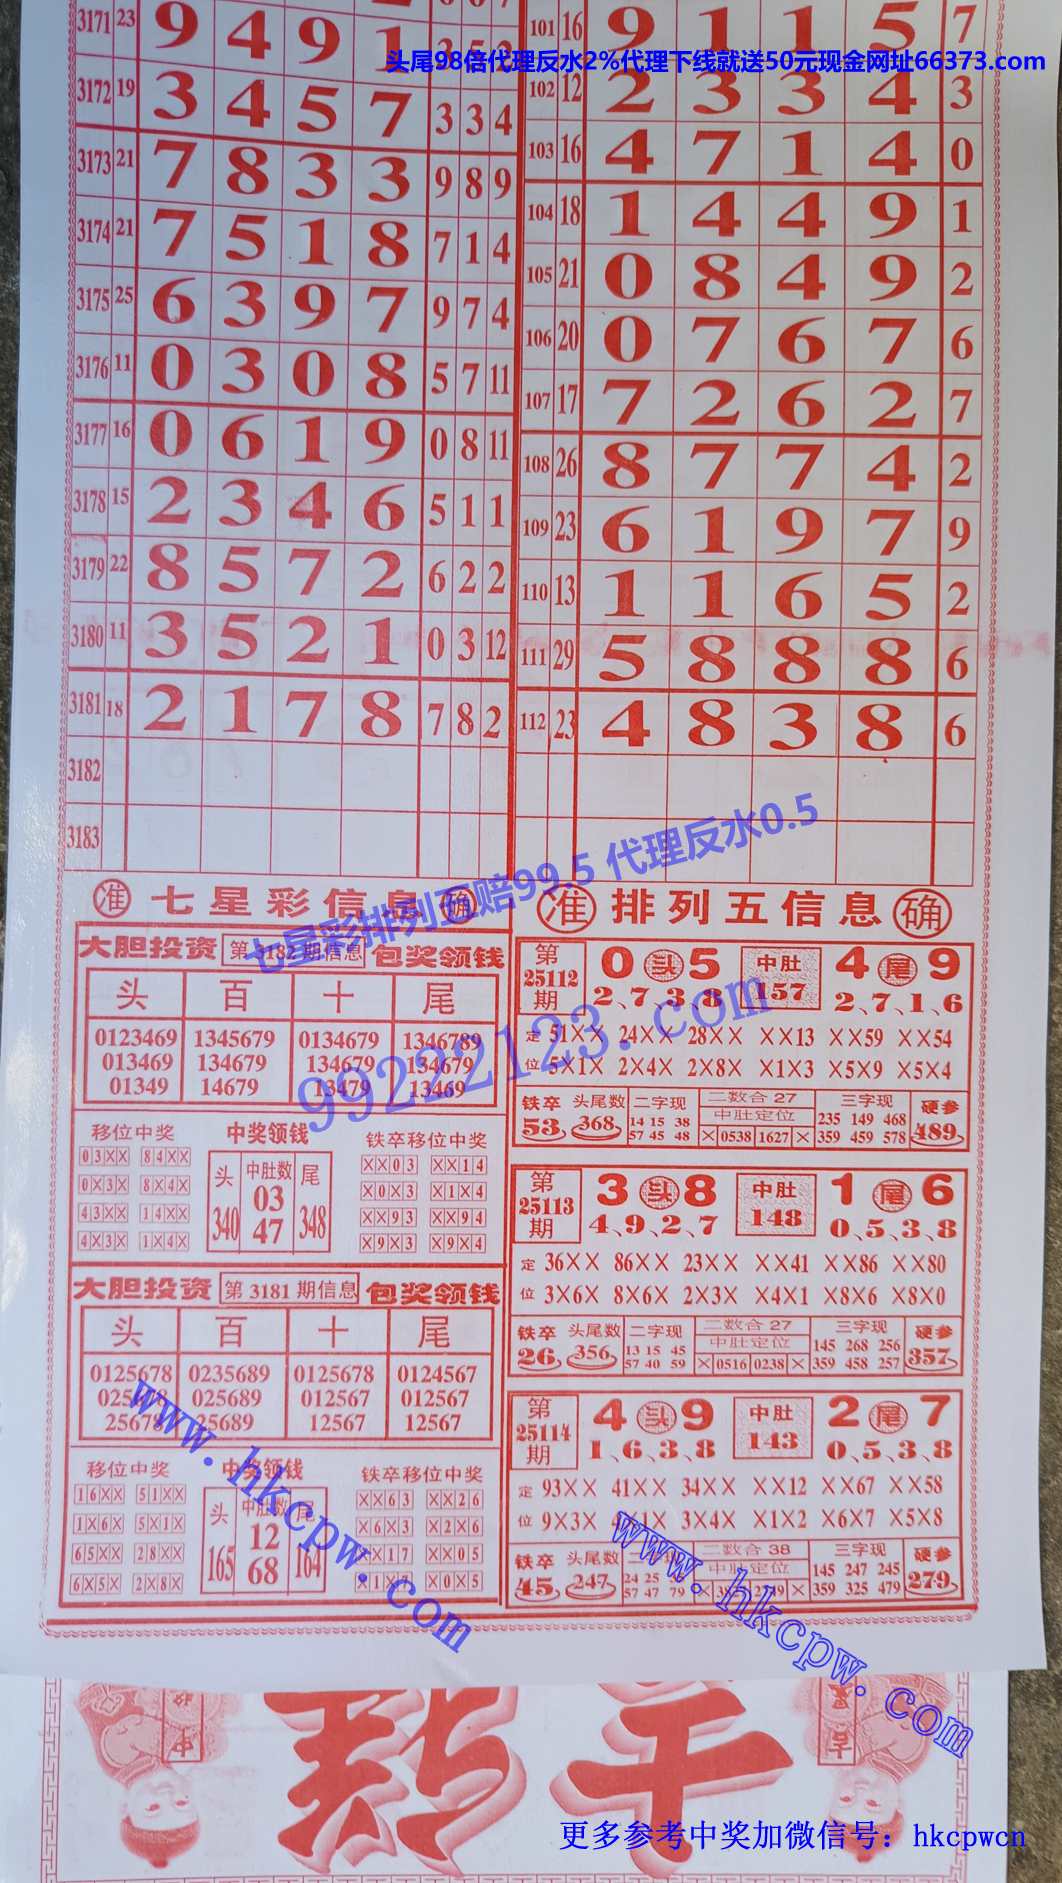 3171 23 9 4 9 1 3 5 2
3172 19 3 4 5 7 3 3 4
3173 21 7 8 3 3 9 8 9
3174 21 7 5 1 8 7 1 4
3175 25 6 3 9 7 9 7 4
3176 11 0 3 0 8 5 7 11
3177 16 0 6 1 9 0 8 11
3178 15 2 3 4 6 5 1 1
3179 22 8 5 7 2 6 2 2
3180 11 3 5 2 1 0 3 12
3181 18 2 1 7 8 7 8 2
3182
3183
101 16 9 1 1 5 7
头尾98倍代理反水2%代理下线就送50元现金网址66373.com
102 12 2 3 3 4 3
103 16 4 7 1 4 0
104 18 1 4 4 9 1
105 21 0 8 4 9 2
106 20 0 7 6 7 6
107 17 7 2 6 2 7
108 26 8 7 7 4 2
109 23 6 1 9 7 9
110 13 1 1 6 5 2
111 29 5 8 8 8 6
112 23 4 8 3 8 6
七星彩排列五赔99.5 代理反水0.5
99222123.com
准 七星彩信息 确
大胆投资 第 3182 期信息 包奖领钱
头 百 十 尾
0123469 1345679 0134679 1346789
013469 134679 134679 134679
01349 14679 13479 13469
移位中奖 中奖领钱 铁卒移位中奖
03XX 84XX
0X3X 8X4X
43XX 14XX
4X3X 1X4X
头 340
中肚数 03 47
尾 348
XX03 XX14
X0X3 X1X4
XX93 XX94
X9X3 X9X4
大胆投资 第 3181 期信息 包奖领钱
头 百 十 尾
0125678 0235689 0125678 0124567
025689 012567 012567
25678 25689 12567 12567
移位中奖 中奖领钱 铁卒移位中奖
16XX 51XX
1X6X 5X1X
65XX 28XX
6X5X 2X8X
头 165
中肚数 12 68
尾 164
XX63 XX26
X6X3 X2X6
XX17 XX05
X1X7 X0X5
准 排列五信息 确
第 25112 期 0 头 5 中肚 157 4 尾 9
2、7、3、8 2、7、1、6
定 51XX 24XX 28XX XX13 XX59 XX54
位 5X1X 2X4X 2X8X X1X3 X5X9 X5X4
铁卒 53 头尾数 368 二字现 14 15 38 57 45 48
二数合 27 中肚定位 X 0538 1627 X
三字现 235 149 468 359 459 578 硬参 489
第 25113 期 3 头 8 中肚 148 1 尾 6
4、9、2、7 0、5、3、8
定 36XX 86XX 23XX XX41 XX86 XX80
位 3X6X 8X6X 2X3X X4X1 X8X6 X8X0
铁卒 26 头尾数 356 二字现 13 15 45 57 40 59
二数合 27 中肚定位 X 0516 0238 X
三字现 145 268 256 359 458 257 硬参 357
第 25114 期 4 头 9 中肚 143 2 尾 7
1、6、3、8 0、5、3、8
定 93XX 41XX 34XX XX12 XX67 XX58
位 9X3X 4X1X 3X4X X1X2 X6X7 X5X8
铁卒 45 头尾数 247 24 25 57 47 79
二数合 38 中肚定位
三字现 145 247 245 359 325 479 硬参 279
www.hkcpw.com
www.hkcpw.com
更多参考中奖加微信号：hkcpwcn